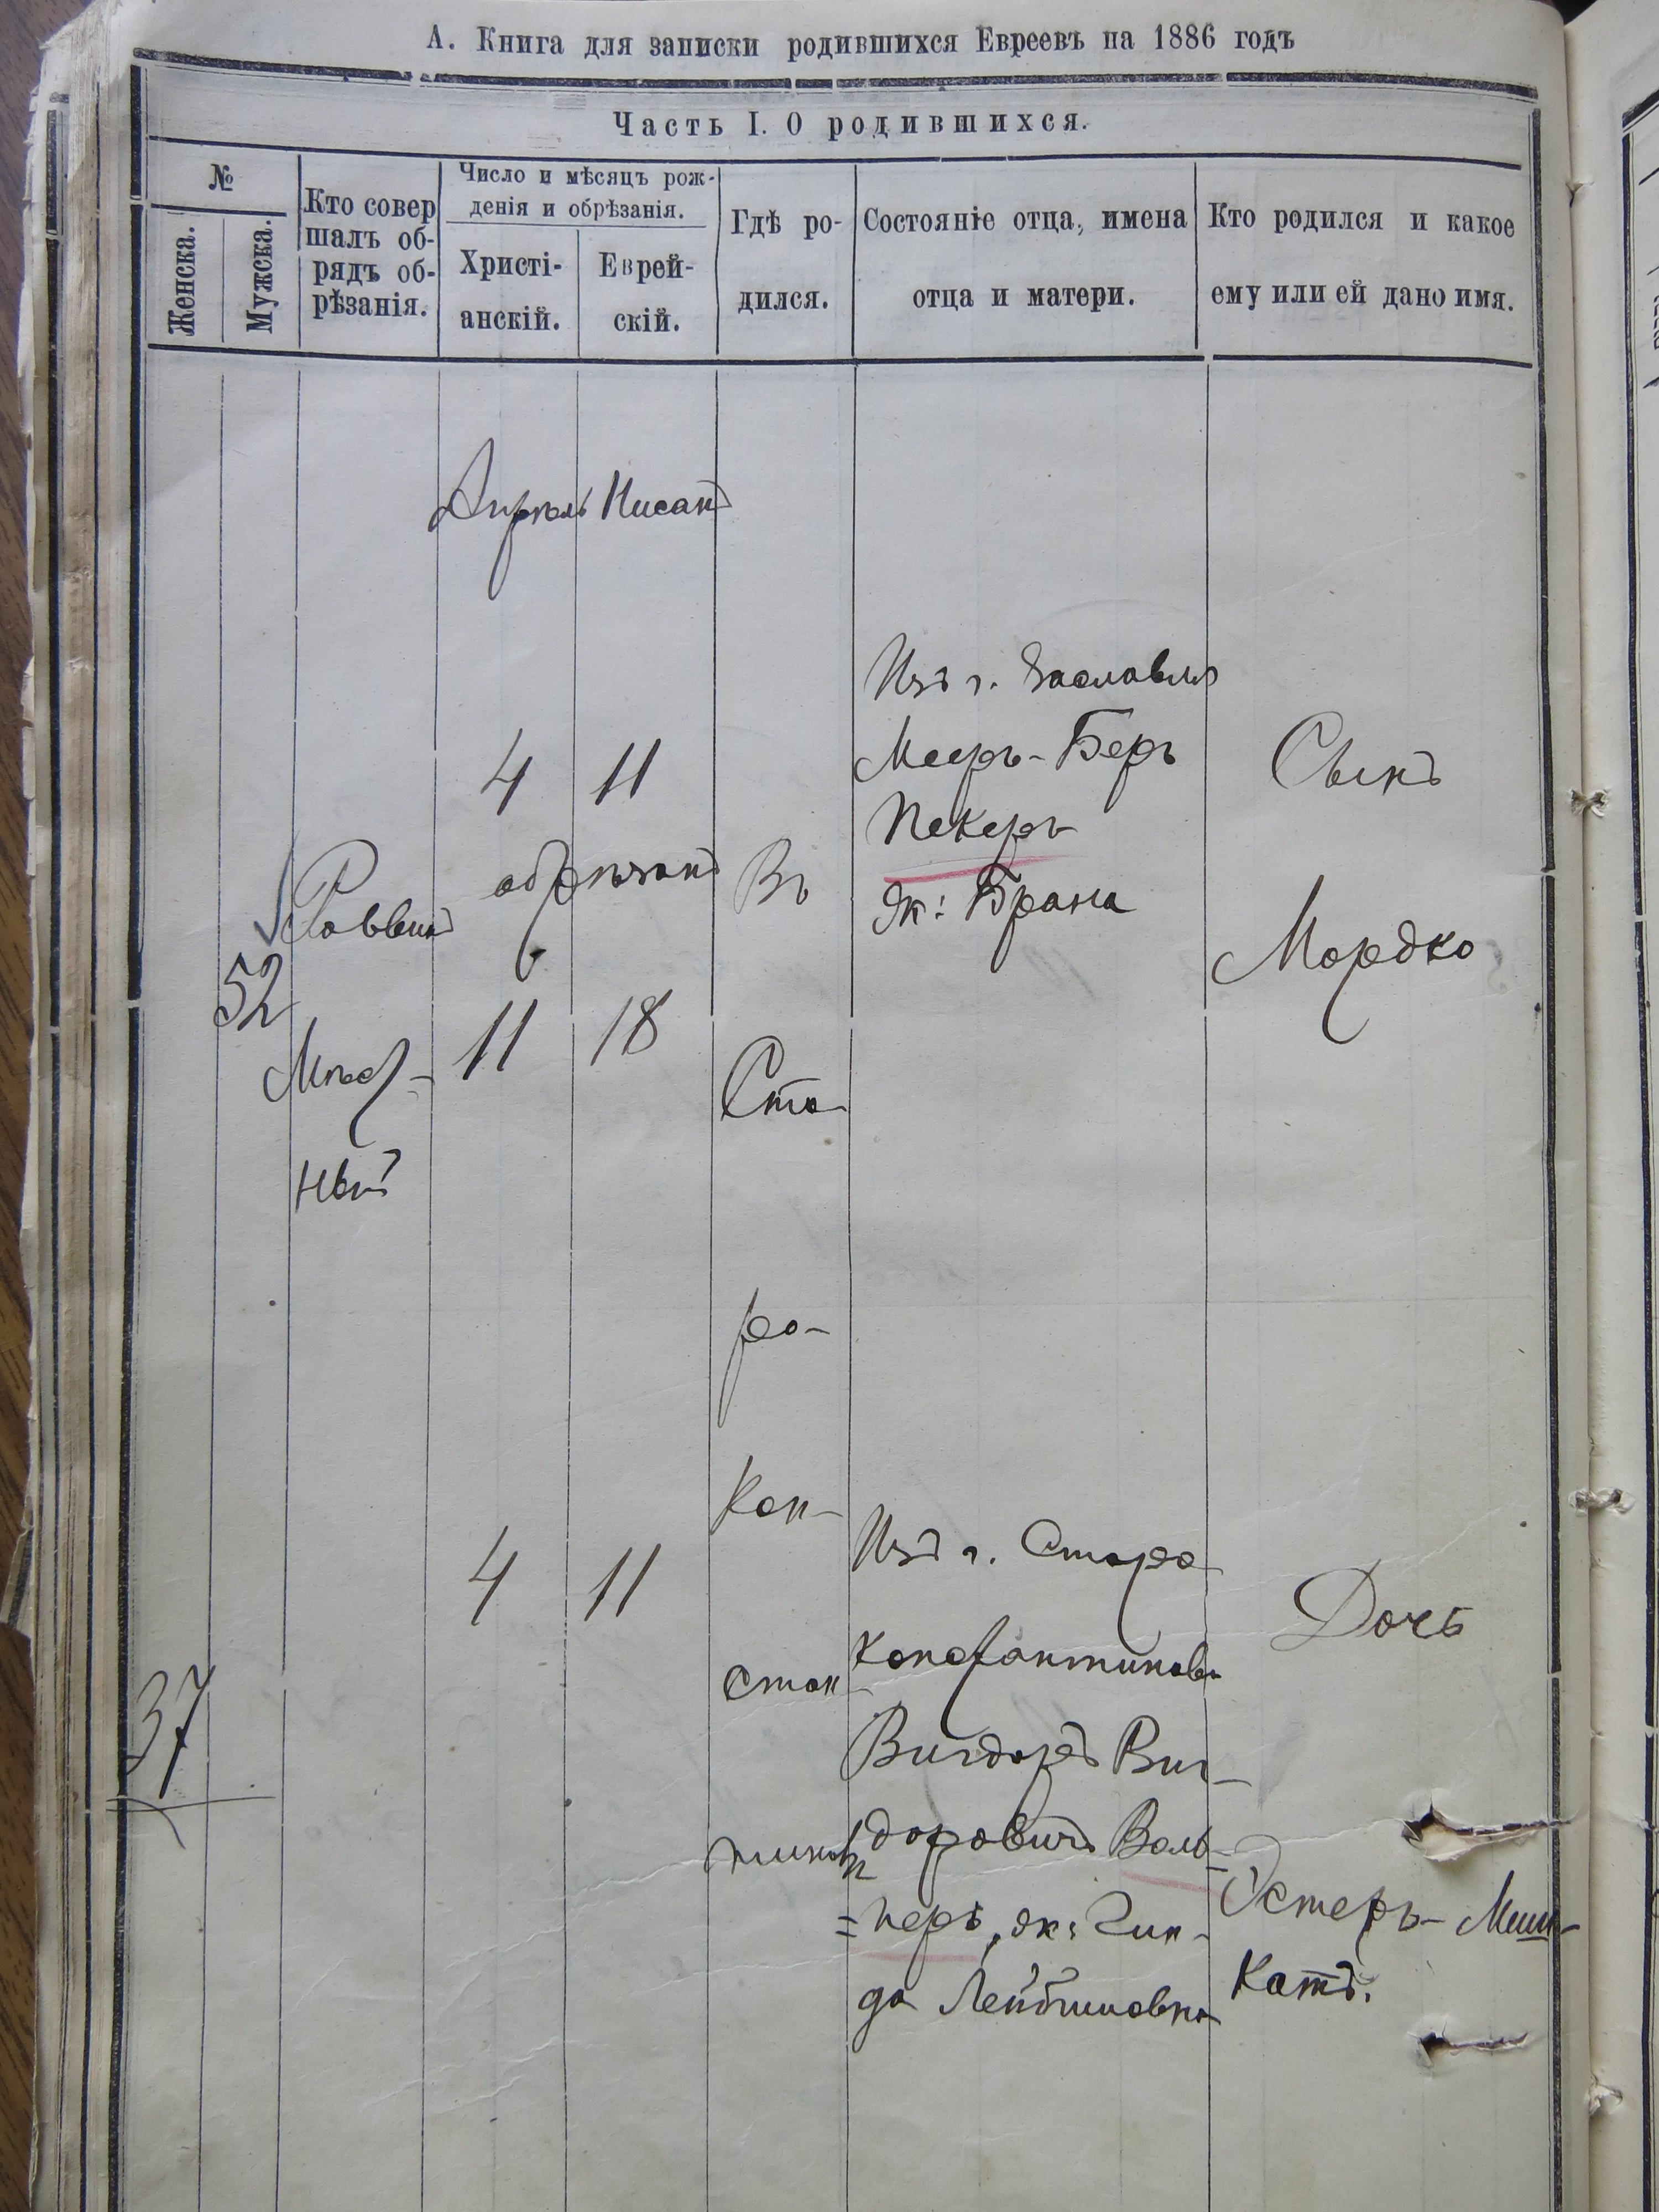 А. Книга для записки родившихся Евреевъ на 1886 годъ
Часть I. О родившихся.
№
Женска.
Мужска.
Кто совер
шалъ об-
рядъ об-
рѣзанія.
Число и мѣсяцъ рож-
денія и обрѣзанія.
Христі-
анскій.
Еврей-
скій.
Гдѣ ро-
дился.
Состояніе отца, имена
отца и матери.
Кто родился и какое
ему или ей дано имя.
Апрель Нисанъ
52
Раввинъ
Мѣст-
ный
4 11
обрезанъ
11 18
Въ
Ста-
ро-
Кон-
стан
тинов
Изъ г. Заславля
Мееръ-Беръ
Пекеръ
Эк: Брана
Сынъ
Мордко
37
4 11
Изъ г. Старо
константинова
Вигдоръ Виг-
доровичъВоль-
=перъ, эк: Гин-
да Лейбишовна
Дочь
Эстеръ-
катъ.